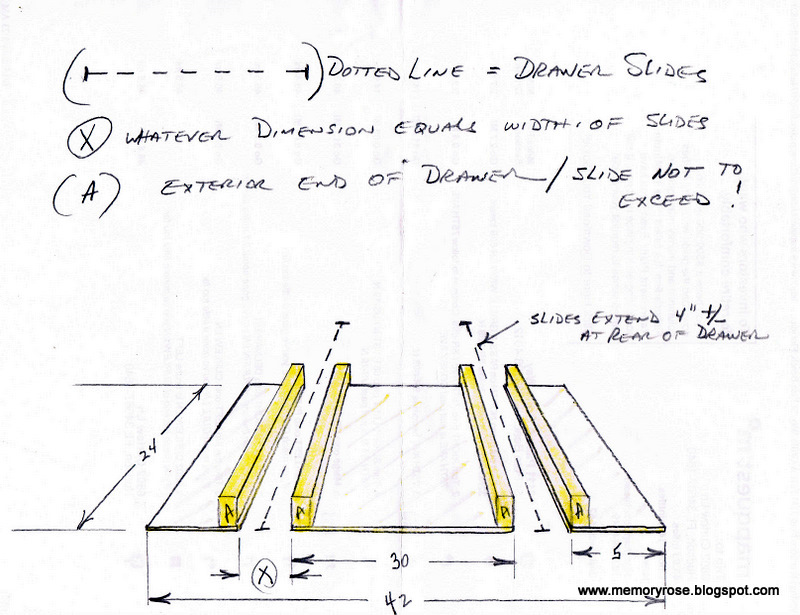 DOTTED LINE = DRAWER SLIDES
(X) WHATEVER DIMENSION EQUALS WIDTH OF SLIDES
(A) EXTERIOR END OF DRAWER/SLIDE NOT TO
EXCEED!
SLIDES EXTEND 4" +/-
AT REAR OF DRAWER
24
A
A
A
A
30
5
X
42
www.memoryrose.blogspot.com